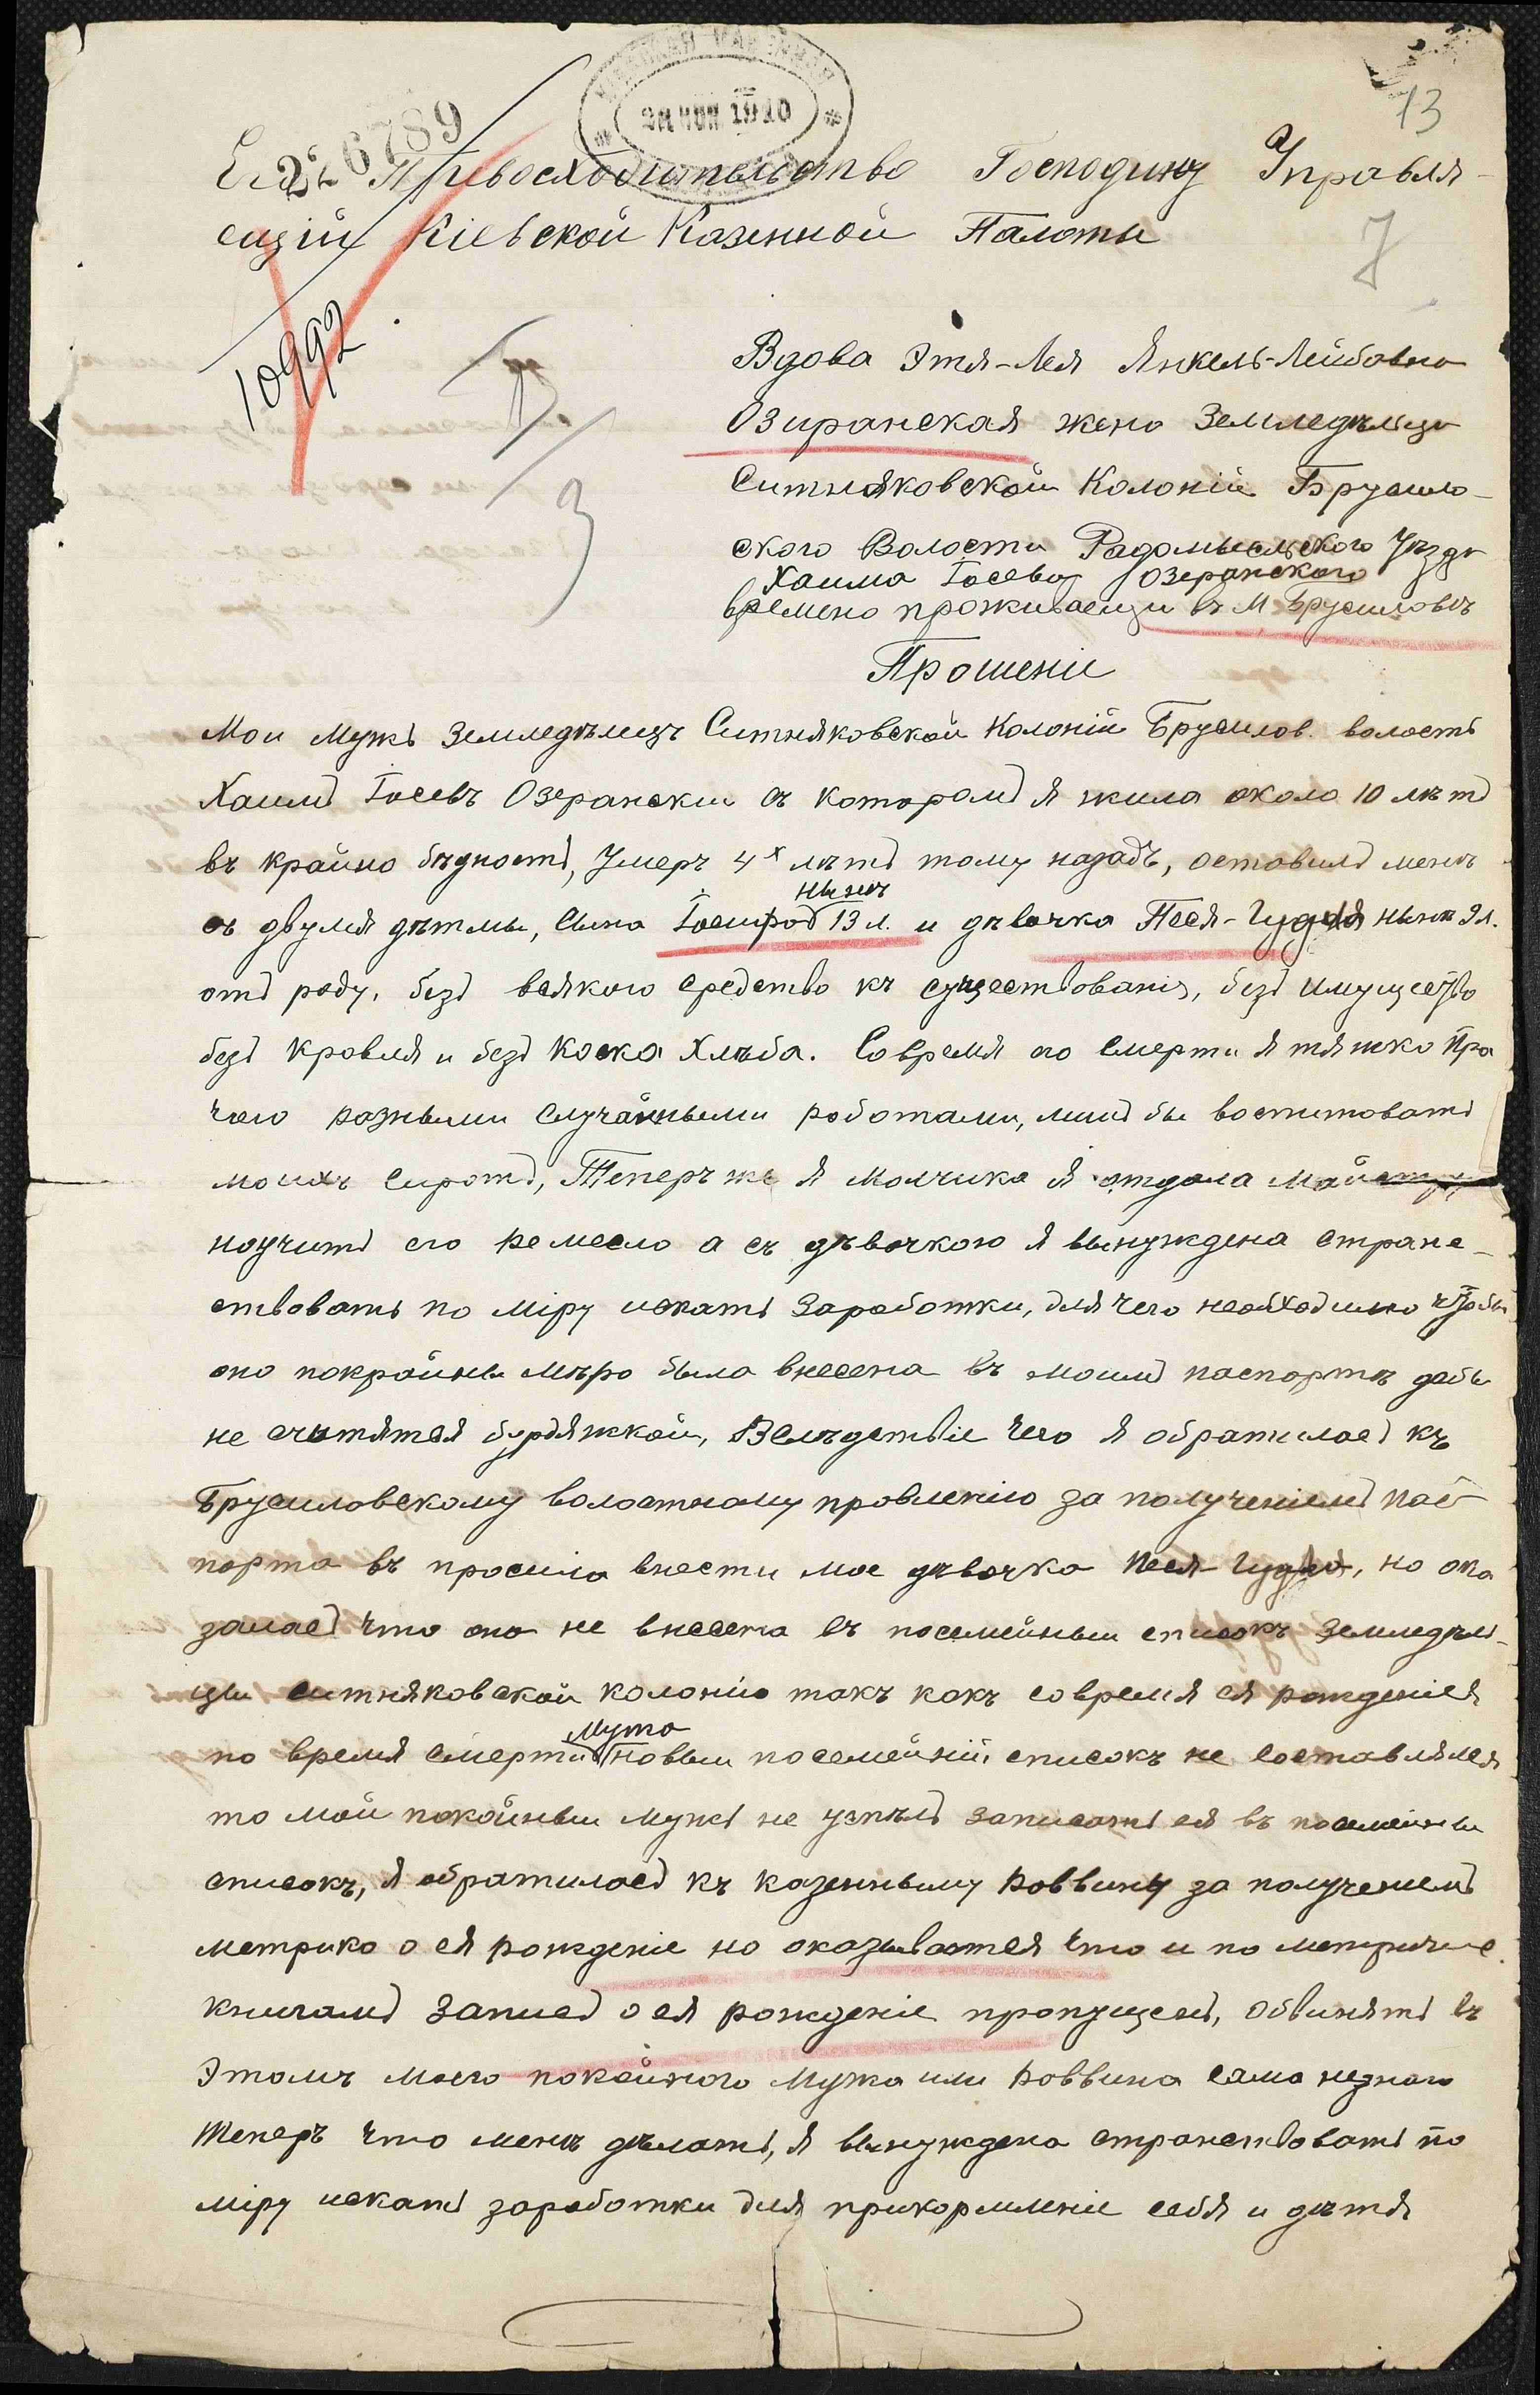 13
226789
28 ІЮН 1910
Его Превосходительство Господину Управля-
ещій Кіевской Казенной Палоты
7
10992
3
Вдова Этя-Лея Янкель-Лейбовна
Озиранская жена Земледѣльца
Ситняковской Колоніи Брусило-
ского Волости Радомысльского Уѣзда
Хаима Іосева Озеранского
времено проживаещи въ М Брусиловѣ
Прошеніе
Мои Мужъ Земледѣлецъ Ситняковской Колоніи Брусилов. волость
Хаимъ Іосевъ Озерански съ которомъ я жила около 10 лѣтъ
въ крайно бѣдность, Умеръ 4х лѣтъ тому назадъ, оставилъ менѣ
нынѣ
съ двумя дѣтмы, сына 13 л. и дѣвочка Песя-Гудля нынѣ 9 л.
отъ роду, безъ всякого средство къ существованія, безъ имущество
безъ кровля и безъ коска хлѣба. Совремя ао смерти я тяжко пра
чаго разными случайными роботами, лишъ бы воспитовать
моихъ сиротъ, Теперъ же я малчика я отдала май
научить его ремесло а съ дѣвочкою я вынуждена стране-
ствовать по міру искать заработки, для чего необходимо чтобы
она покрайны мѣра была внесена въ моимъ паспортѣ дабы
не счытятся бурдяжкой, Вслѣдствіе чего я обратилась къ
Брусиловскому волостному провленію за полученіемъ пас-
порта въ просила внести мое дѣвочка Песя-Гудля, но ока
залась что она не внесена въ посемейным списокъ земледѣль-
цы ситняковской колонію такъ какъ совремія ея рожденіея
Мужа
по время смерти новыи посемейній списокъ не составлялся
то мой покойныи мужъ не успѣлъ записать ея въ посемейны
списокъ, я обратилась къ казенныму Роввину за полученіемъ
метрика о ея рожденіе но оказывается что и по метричне
книгамъ запись о ея рожденіе пропущенъ, обвинять въ
этомъ моего покойного мужа или Роввина сама незнаю
Теперъ что менѣ дѣлать, я вынуждена странствовать по
міру искать заработки для прикормленіе себя и дѣтя